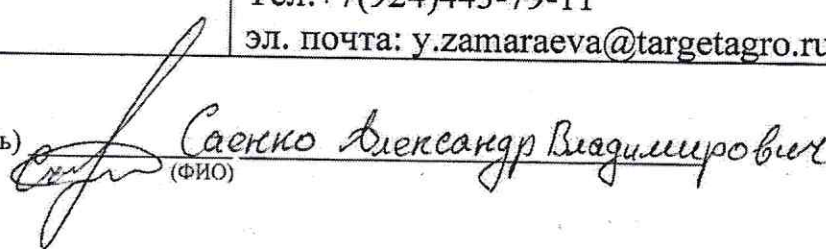 Тел.:+7(924)445-79-11
эл. почта: y.zamaraeva@targetagro.ru
ь) Саенко Александр Владимирович
(ФИО)